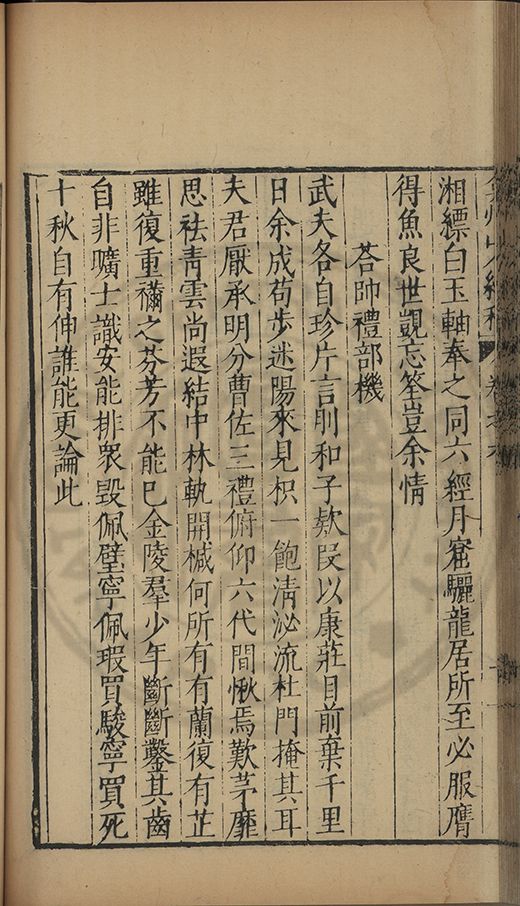 湘縹白玉軸奉之同六經月窟驪龍居所至必服膺
得魚良世覬忘筌豈余情
荅帥禮部機
武夫各自珍片言刖和子欵叚以康莊目前棄千里
日余成苟步迷陽來見枳一飽淸泌流杜門掩其耳
夫君厭承明分曹佐三禮俯仰六代間愀焉歎茅靡
思祛靑雲尚遐結中林軌開椷何所有有蘭復有芷
雖復重禰之芬芳不能巳金陵羣少年斷斷鑿其齒
自非曠士識安能排衆毀佩璧寧佩瑕買駿寧買死
十秋自有伸誰能更論此